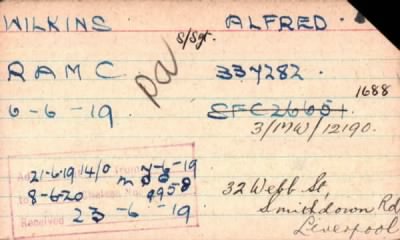 WILKINS ALFRED.
S/Sgt.
RAMC 337282.
1688
6-6-19 EFC2665I
3/MW/12190.
21-6-19 14/0 7-6-19
8-6-20 4958
to
Received 23-6-19
32 Webb St,
Smithdown Rd
Liverpool